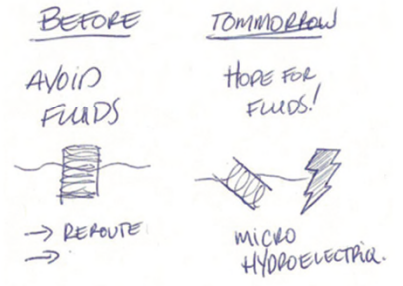 BEFORE
AVOID
FLUIDS
→ REROUTE
→
TOMMORROW
HOPE FOR
FLUIDS!
MICRO
HYDROELECTRIQ.